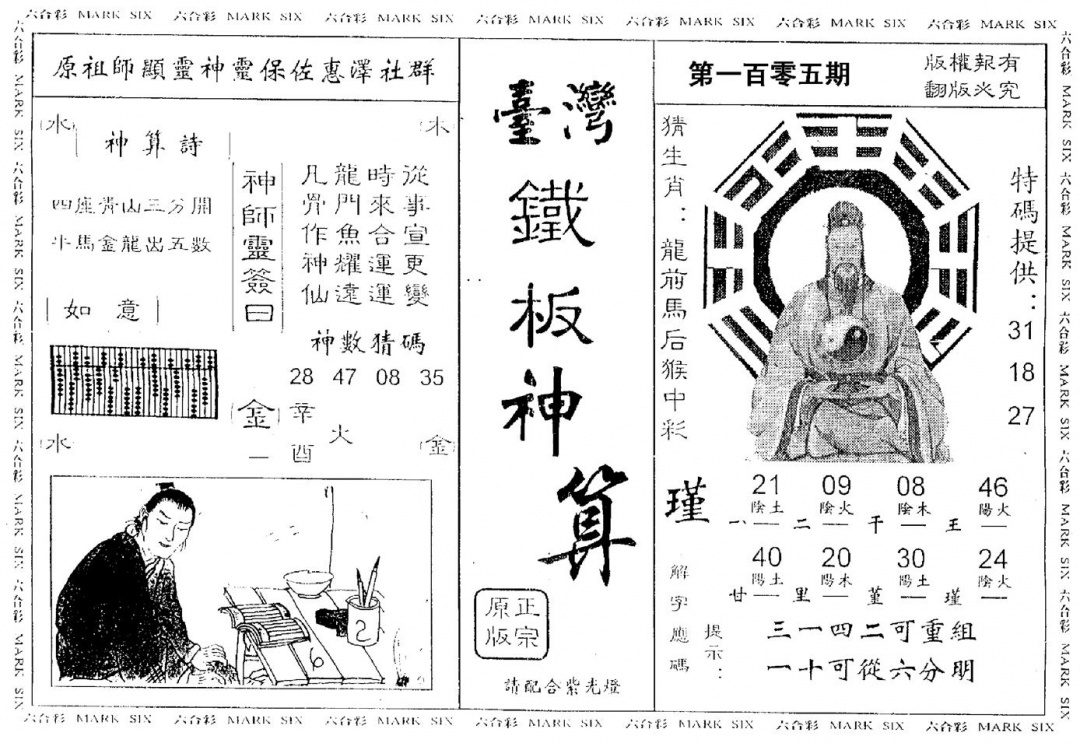 六合彩 MARK SIX 六合彩 MARK SIX 六合彩 MARK SIX 六合彩 MARK SIX 六合彩 MARK SIX 六合彩 MARK SIX 六合彩 MARK SIX
原祖師顯靈神靈保佐惠澤社群
水
木
神算詩
四座青山三分開
牛馬金龍出五數
如意
神師靈簽曰
從事宣更變
時來合運運
龍門魚耀遠
凡骨作神仙
神數猜碼
28 47 08 35
金一
辛酉
火
水
金
2
6
臺灣
鐵板神算
正宗
原版
請配合紫光燈
第一百零五期
版權報有
翻版必究
猜生肖：龍前馬后猴中彩
特碼提供：
31
18
27
瑾
21 09 08 46
陰土 陰火 陰木 陽火
一 二 干 王
40 20 30 24
陽土 陽木 陽土 陰火
廿 里 堇 瑾
解字應碼
提示：
三一四二可重組
一十可從六分明
六合彩 MARK SIX 六合彩 MARK SIX 六合彩 MARK SIX 六合彩 MARK SIX 六合彩 MARK SIX 六合彩 MARK SIX 六合彩 MARK SIX
六合彩 MARK SIX 六合彩 MARK SIX 六合彩 MARK SIX 六合彩 MARK SIX 六合彩 MARK SIX
六合彩 MARK SIX 六合彩 MARK SIX 六合彩 MARK SIX 六合彩 MARK SIX 六合彩 MARK SIX